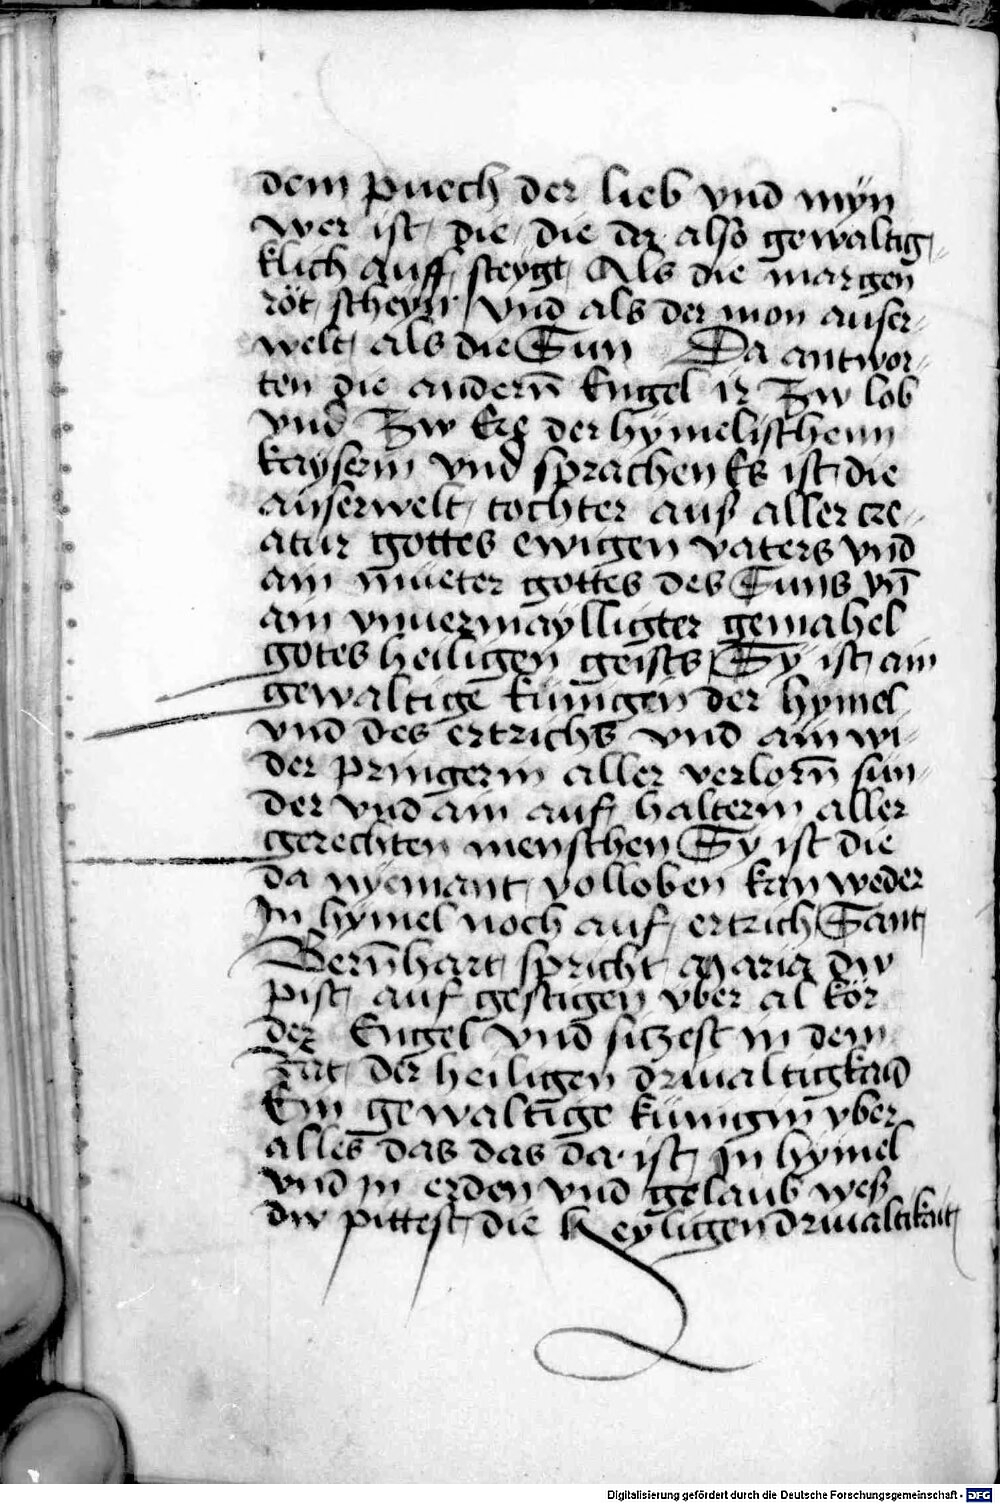 dem puech der lieb vnd myn
wer ist die die da also gewaltig-
klich auff steygt Als die margen
röt scheyn vnd als der mon auser-
welt als die Sun Da antwor-
ten die andern̄ Engel ir Zw lob
vnd Zw Ere der hymelischenn
kayserin vnd sprachen Es ist die
auserwelt tochter auß aller cre-
atur gottes ewigen vaters vnd
ain mueter gottes des Suns vn̄
ain vnuermaylligter gemahel
gotes heiligen geists Sy ist ain
gewaltige künigen der hymel
vnd des ertrichs vnd ain wi-
der pringerin aller verlorn̄ sün-
der vnd ain auf halterin aller
gerechten menschen Sy ist die
da nyemant volloben kan weder
In hymel noch auf ertrich Sant
Bern̄hart spricht Maria dw
pist auf gestigen vber al kör
der Engel vnd sitzest in dem
rat der heiligen driualtigkaid
Ein gewaltige künigin vber
alles das das da ist in hymel
vnd in erden vnd gelaub wes
dw pittest die heyligen driualtikait
Digitalisierung gefördert durch die Deutsche Forschungsgemeinschaft - DFG